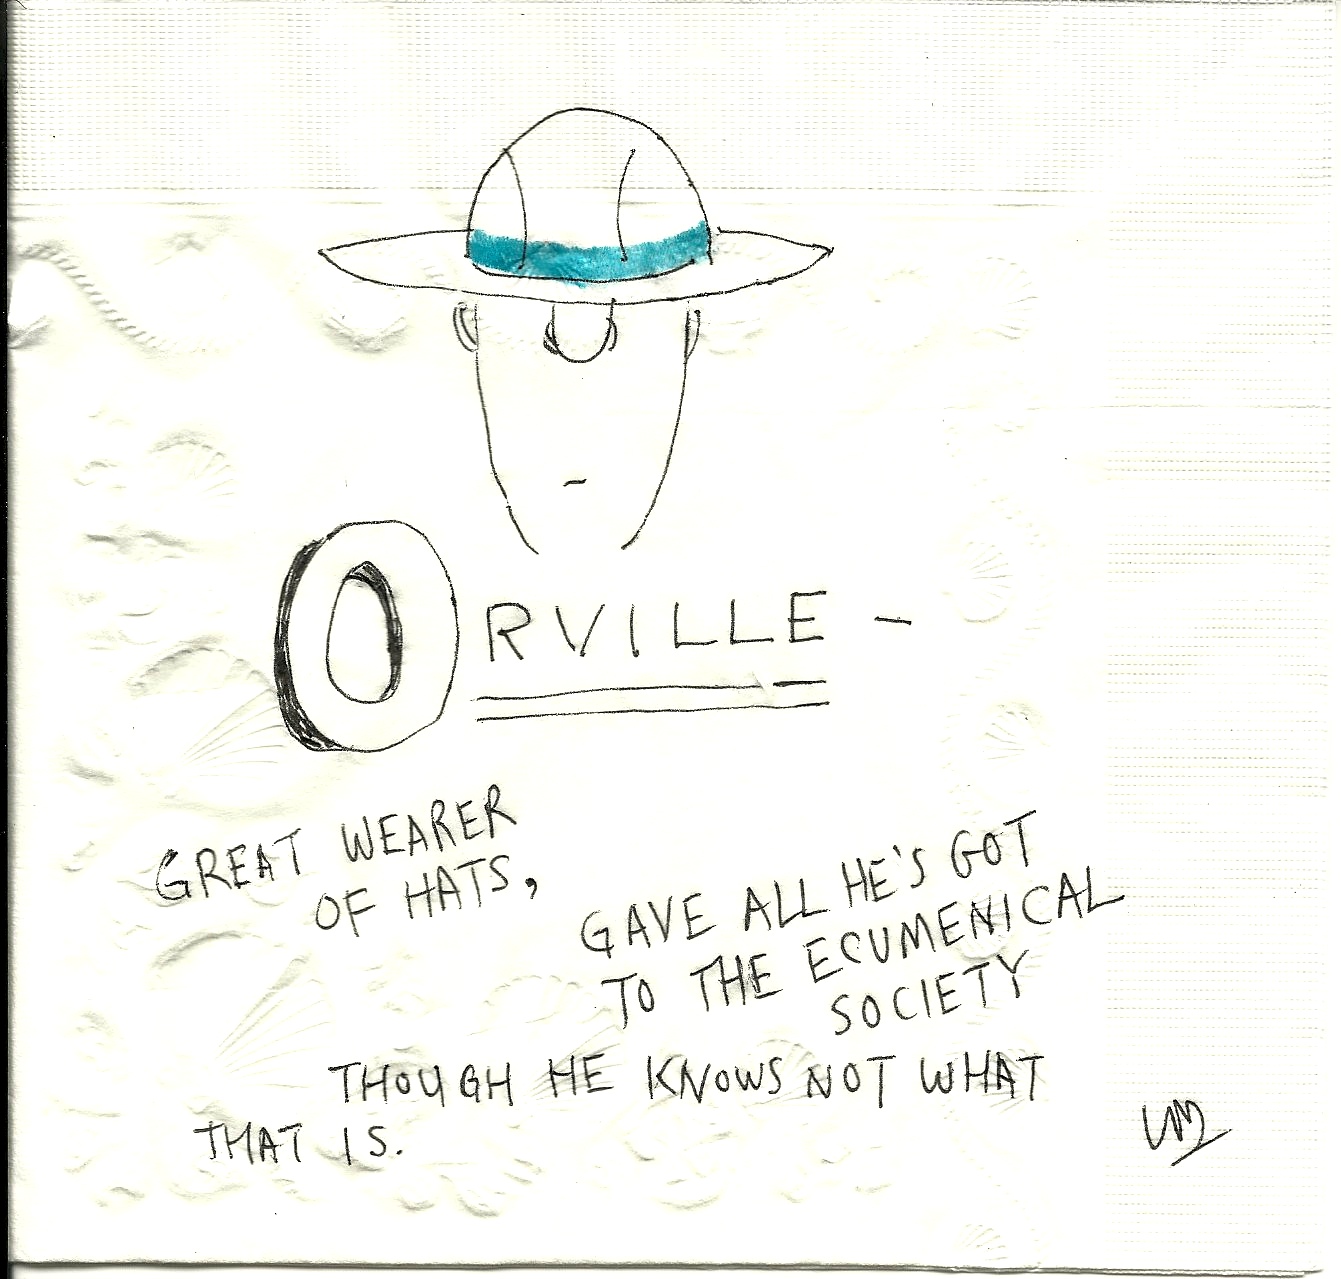 ORVILLE -
GREAT WEARER
OF HATS,
GAVE ALL HE'S GOT
TO THE ECUMENICAL
SOCIETY
THOUGH HE KNOWS NOT WHAT
THAT IS.